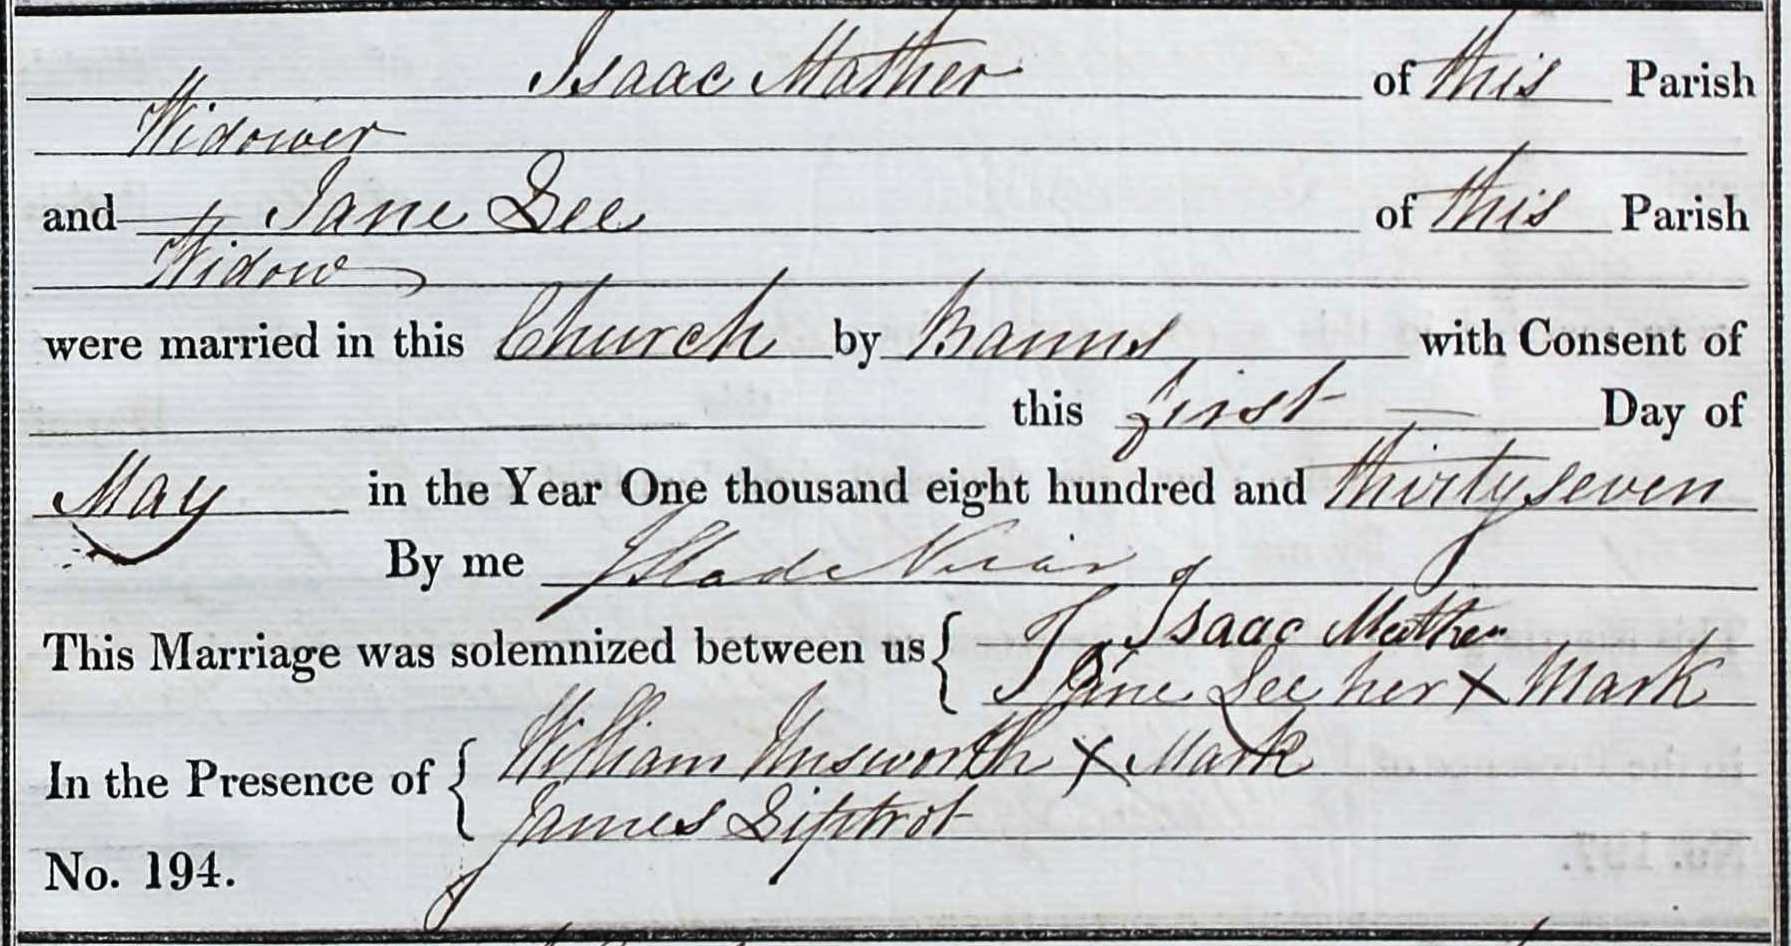 Isaac Mather of this Parish
Widower
and Jane Lee of this Parish
Widow
were married in this Church by Banns with Consent of
this first Day of
May in the Year One thousand eight hundred and thirty seven
By me J Slade Vicar
This Marriage was solemnized between us { Isaac Mather
Jane Lee her X Mark
In the Presence of { William Unsworth X Mark
James Liptrot
No. 194.